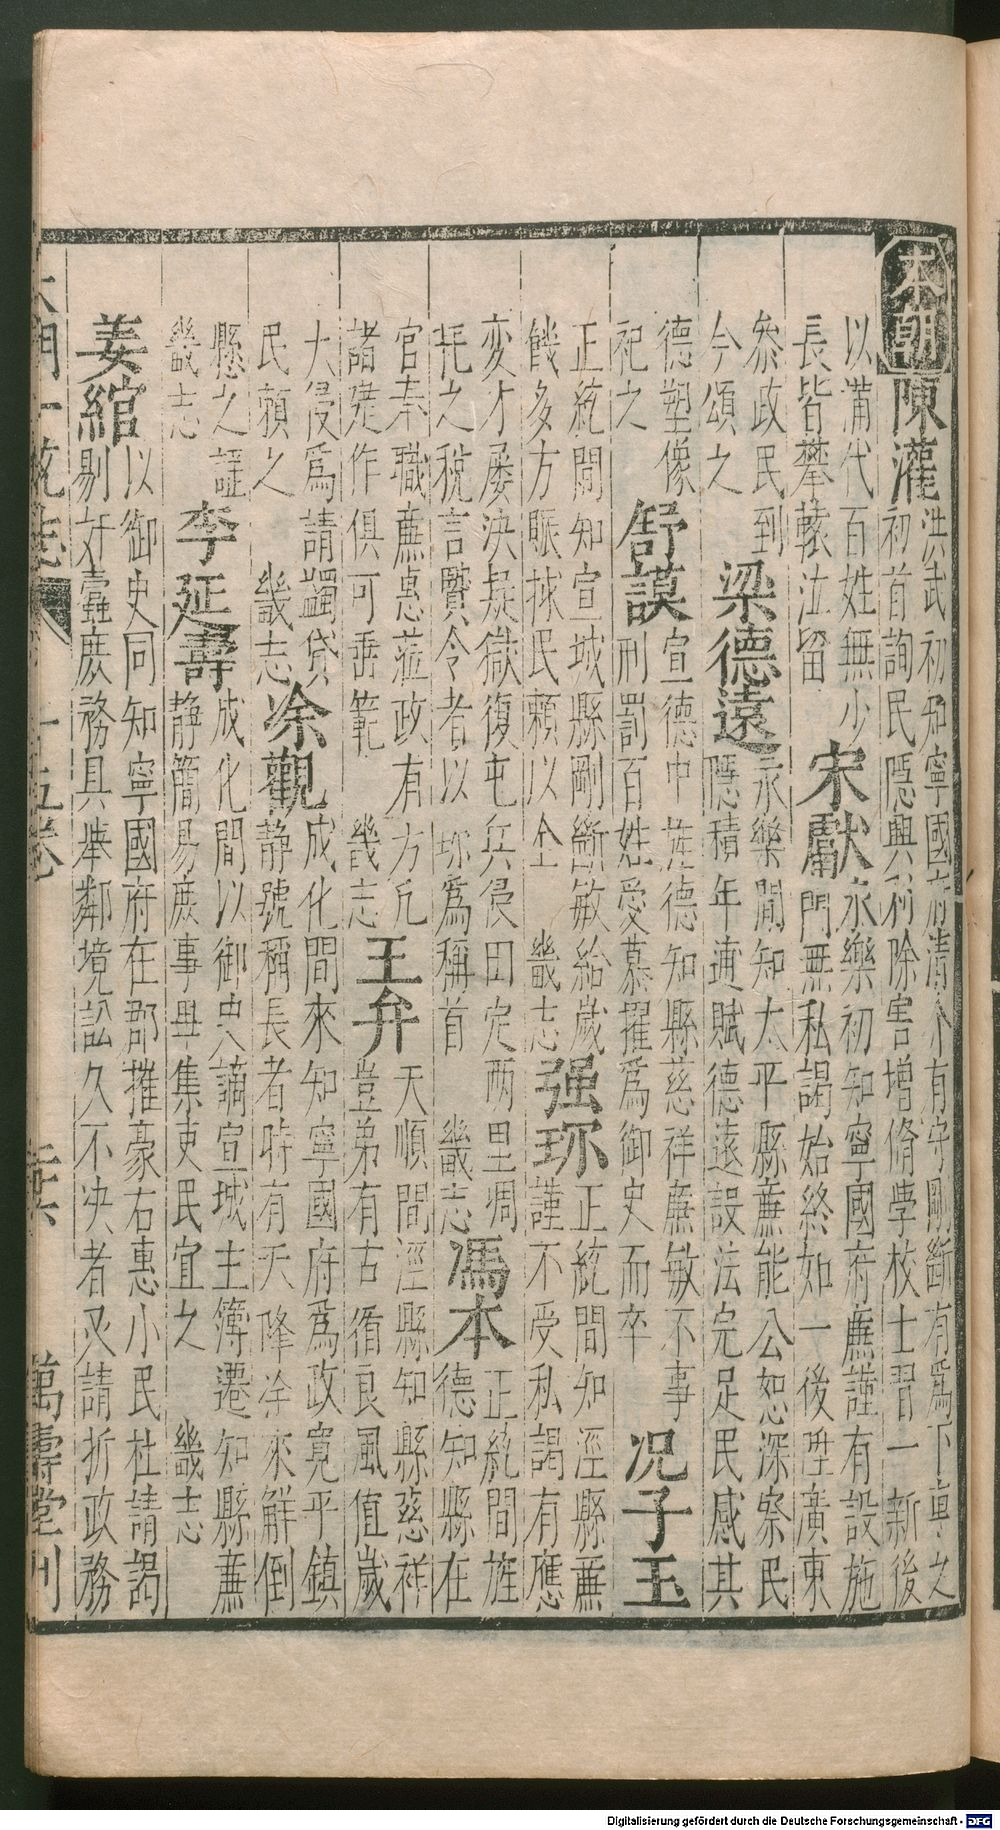 本朝
陳灌
洪武初知寧國府清介有守剛斷有爲下車之
初首詢民隱興利除害增脩學校士習一新後
以滿代百姓無少
長皆攀轅泣留
宋獻
永樂初知寧國府廉謹有設施
門無私謁始終如一後陞廣東
叅政民到
今頌之
梁德遠
永樂間知太平縣廉能公恕深察民
隱積年逋賦德遠設法完足民感其
德塑像
祀之
舒謨
宣德中旌德知縣慈祥廉敏不事
刑罰百姓愛慕擢爲御史而卒
况子玉
正統間知宣城縣剛斷敏給歲
饑多方賑捄民賴以全 畿志
强珎
正統間知涇縣廉
謹不受私謁有應
変才屡決疑獄復屯兵侵田定两里凋
耗之稅言賢令者以珎爲稱首 畿志
馮本
正統間旌
德知縣在
官奉職廉惠蒞政有方凢
諸建作俱可垂範 畿志
王弁
天順間涇縣知縣慈祥
豈弟有古循良風值歲
大侵爲請蠲貸
民賴之 畿志
凃觀
成化間來知寧國府爲政寬平鎮
静號稱長者時有天降凃來解倒
縣之謡
畿志
李延壽
成化間以御史謫宣城主簿遷知縣亷
静簡易庶事畢集吏民宜之 畿志
姜綰
以御史同知寧國府在郡摧豪右惠小民杜請謁
剔奸蠹庶務具舉鄰境訟久不决者又請折政務
大明一統志
十五卷
萬壽堂刊
Digitalisierung gefördert durch die Deutsche Forschungsgemeinschaft - DFG